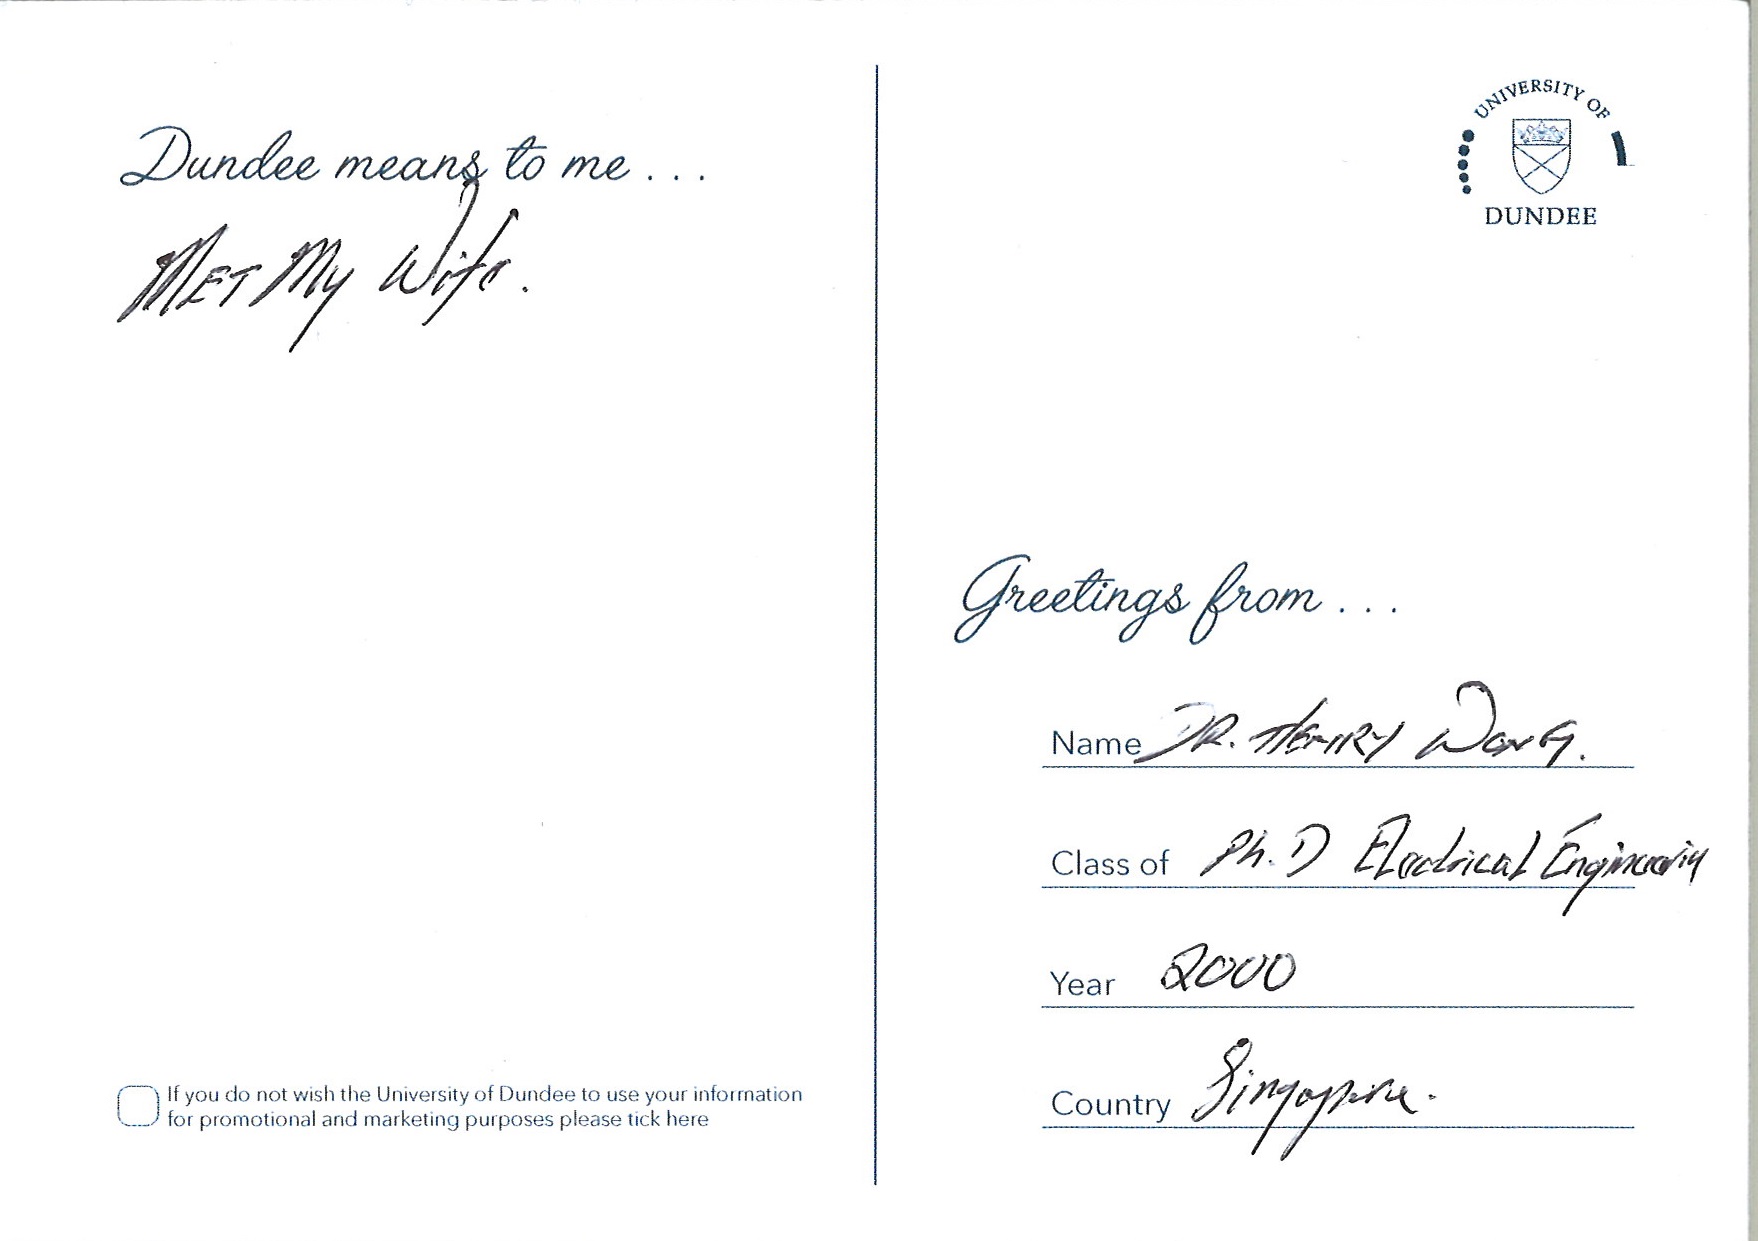 Dundee means to me ...
MET My Wife.
If you do not wish the University of Dundee to use your information
for promotional and marketing purposes please tick here
UNIVERSITY OF
DUNDEE
Greetings from ...
Name DR. HENRY WONG.
Class of Ph.D Electrical Engineering
Year 2000
Country Singapore.